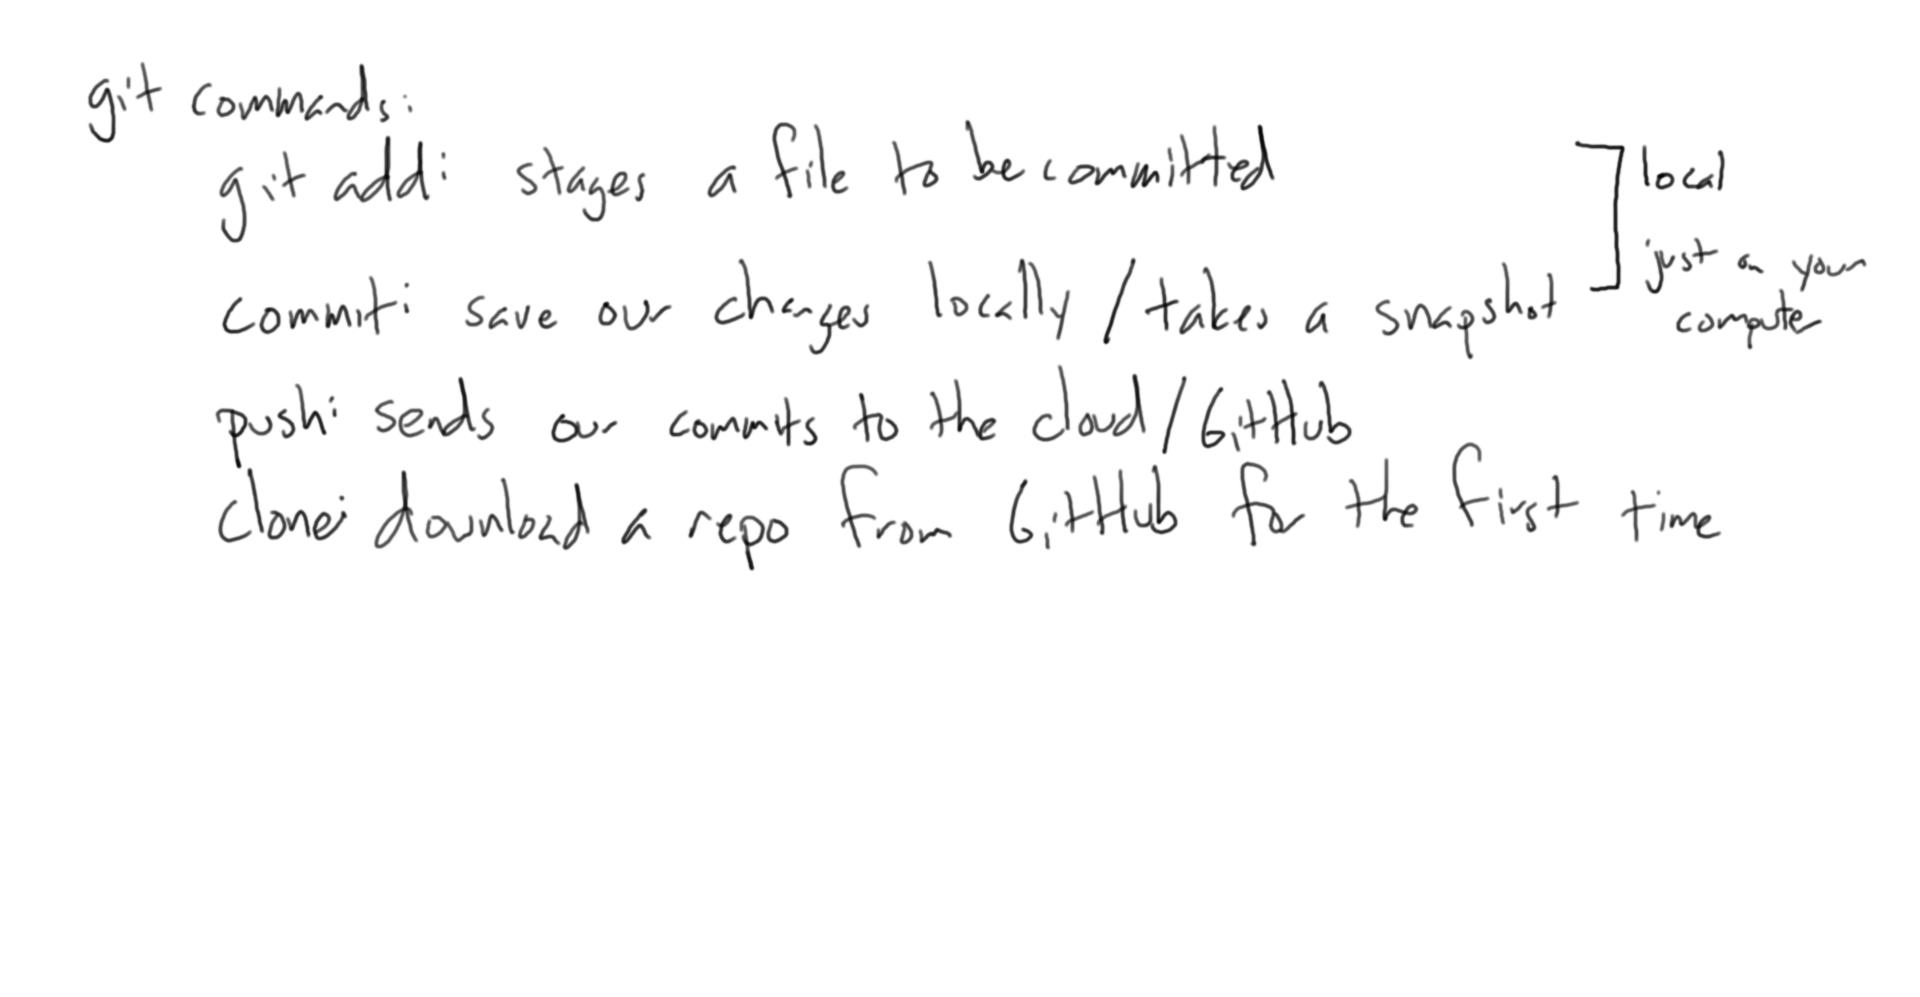 git commands:
git add: stages a file to be committed
commit: save our changes locally / takes a snapshot
local
just on your
computer
push: sends our commits to the cloud / GitHub
clone: download a repo from GitHub for the first time